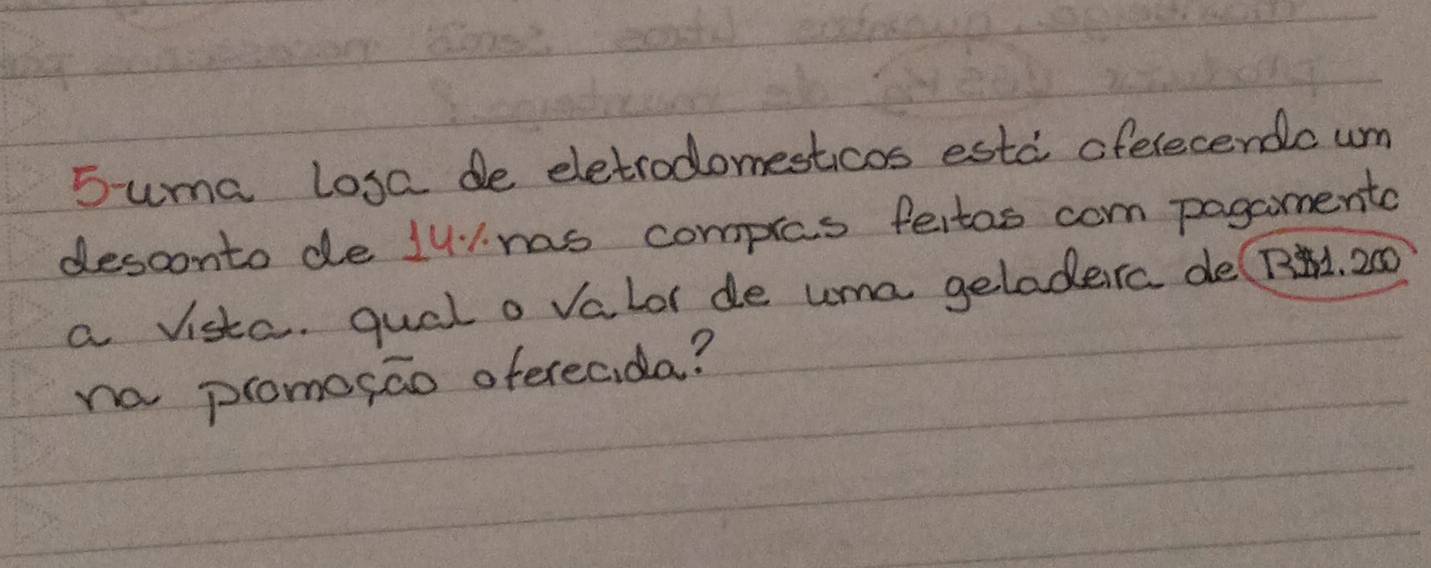 5-uma loja de eletrodomesticos está oferecendo um
desconto de 14% nas compras feitas com pagamento
a vista. qual o valor de uma geladeira de R$1.200
na promoção oferecida?